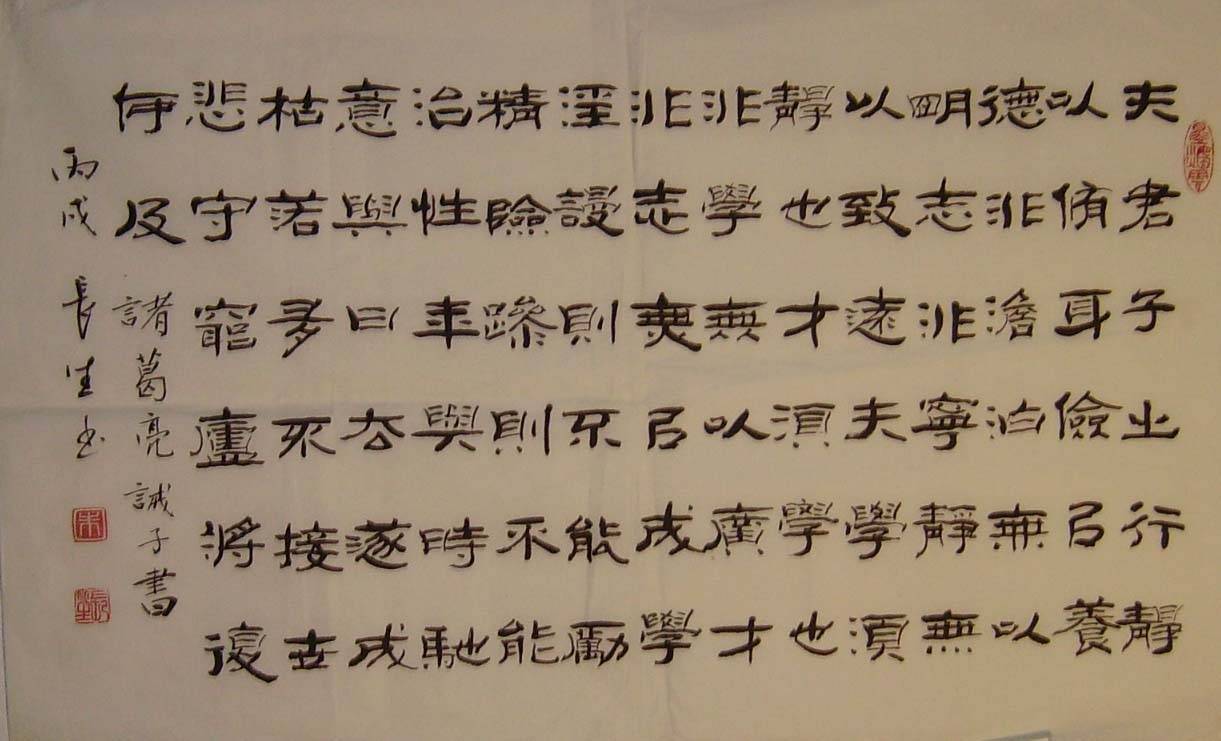 夫君子之行靜
以脩身儉㠯養
德非澹泊無以
明志非寧靜無
以致遠夫學須
靜也才須學也
非學無以廣才
非志無㠯成學
淫謾則不能勵
精險躁則不能
治性年與時馳
意與日去遂成
枯落多不接世
悲守窮廬將復
何及
諸葛亮誡子書
丙戌 長生书
朱
長生